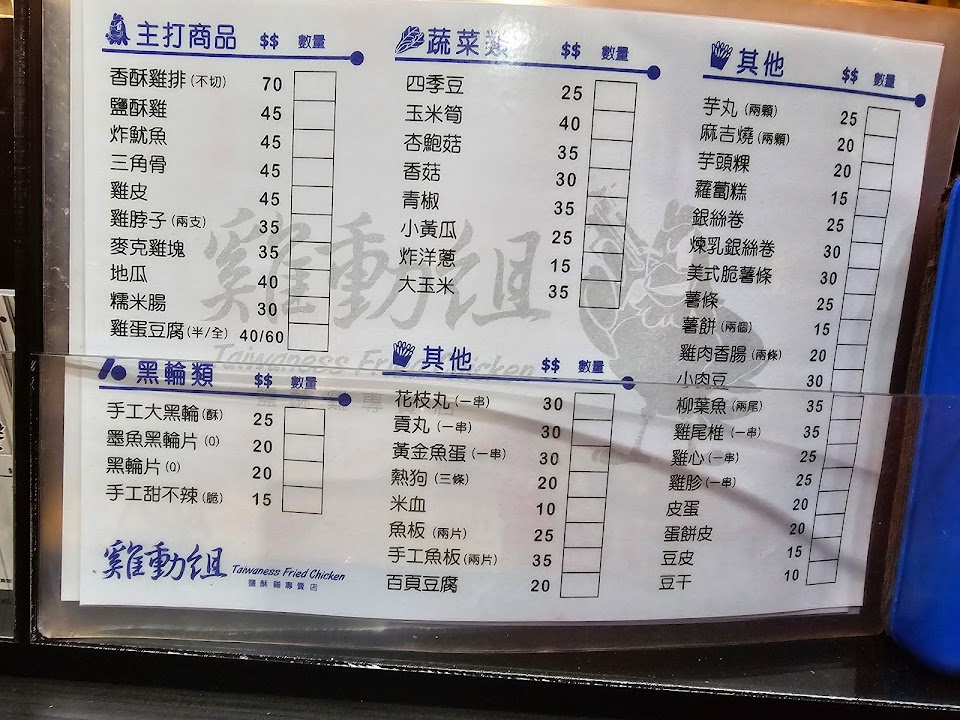 主打商品 $$ 數量
香酥雞排(不切) 70
鹽酥雞 45
炸魷魚 45
三角骨 45
雞皮 45
雞脖子(兩支) 35
麥克雞塊 35
地瓜 40
糯米腸 30
雞蛋豆腐(半/全) 40/60
黑輪類 $$ 數量
手工大黑輪(酥) 25
墨魚黑輪片(Q) 20
黑輪片(Q) 20
手工甜不辣(脆) 15
雞動組 Taiwaness Fried Chicken
鹽酥雞專賣店
蔬菜類 $$ 數量
四季豆 25
玉米筍 40
杏鮑菇 35
香菇 30
青椒 35
小黃瓜 25
炸洋蔥 15
大玉米 35
其他 $$ 數量
花枝丸(一串) 30
貢丸(一串) 30
黃金魚蛋(一串) 30
熱狗(三條) 20
米血 10
魚板(兩片) 25
手工魚板(兩片) 35
百頁豆腐 20
其他 $$ 數量
芋丸(兩顆) 25
麻吉燒(兩顆) 20
芋頭粿 20
蘿蔔糕 15
銀絲卷 25
煉乳銀絲卷 30
美式脆薯條 30
薯條 25
薯餅(兩個) 15
雞肉香腸(兩條) 20
小肉豆 30
柳葉魚(兩尾) 35
雞尾椎(一串) 35
雞心(一串) 25
雞胗(一串) 25
皮蛋 20
蛋餅皮 20
豆皮 15
豆干 10
雞動組
Taiwaness Fried Chicken